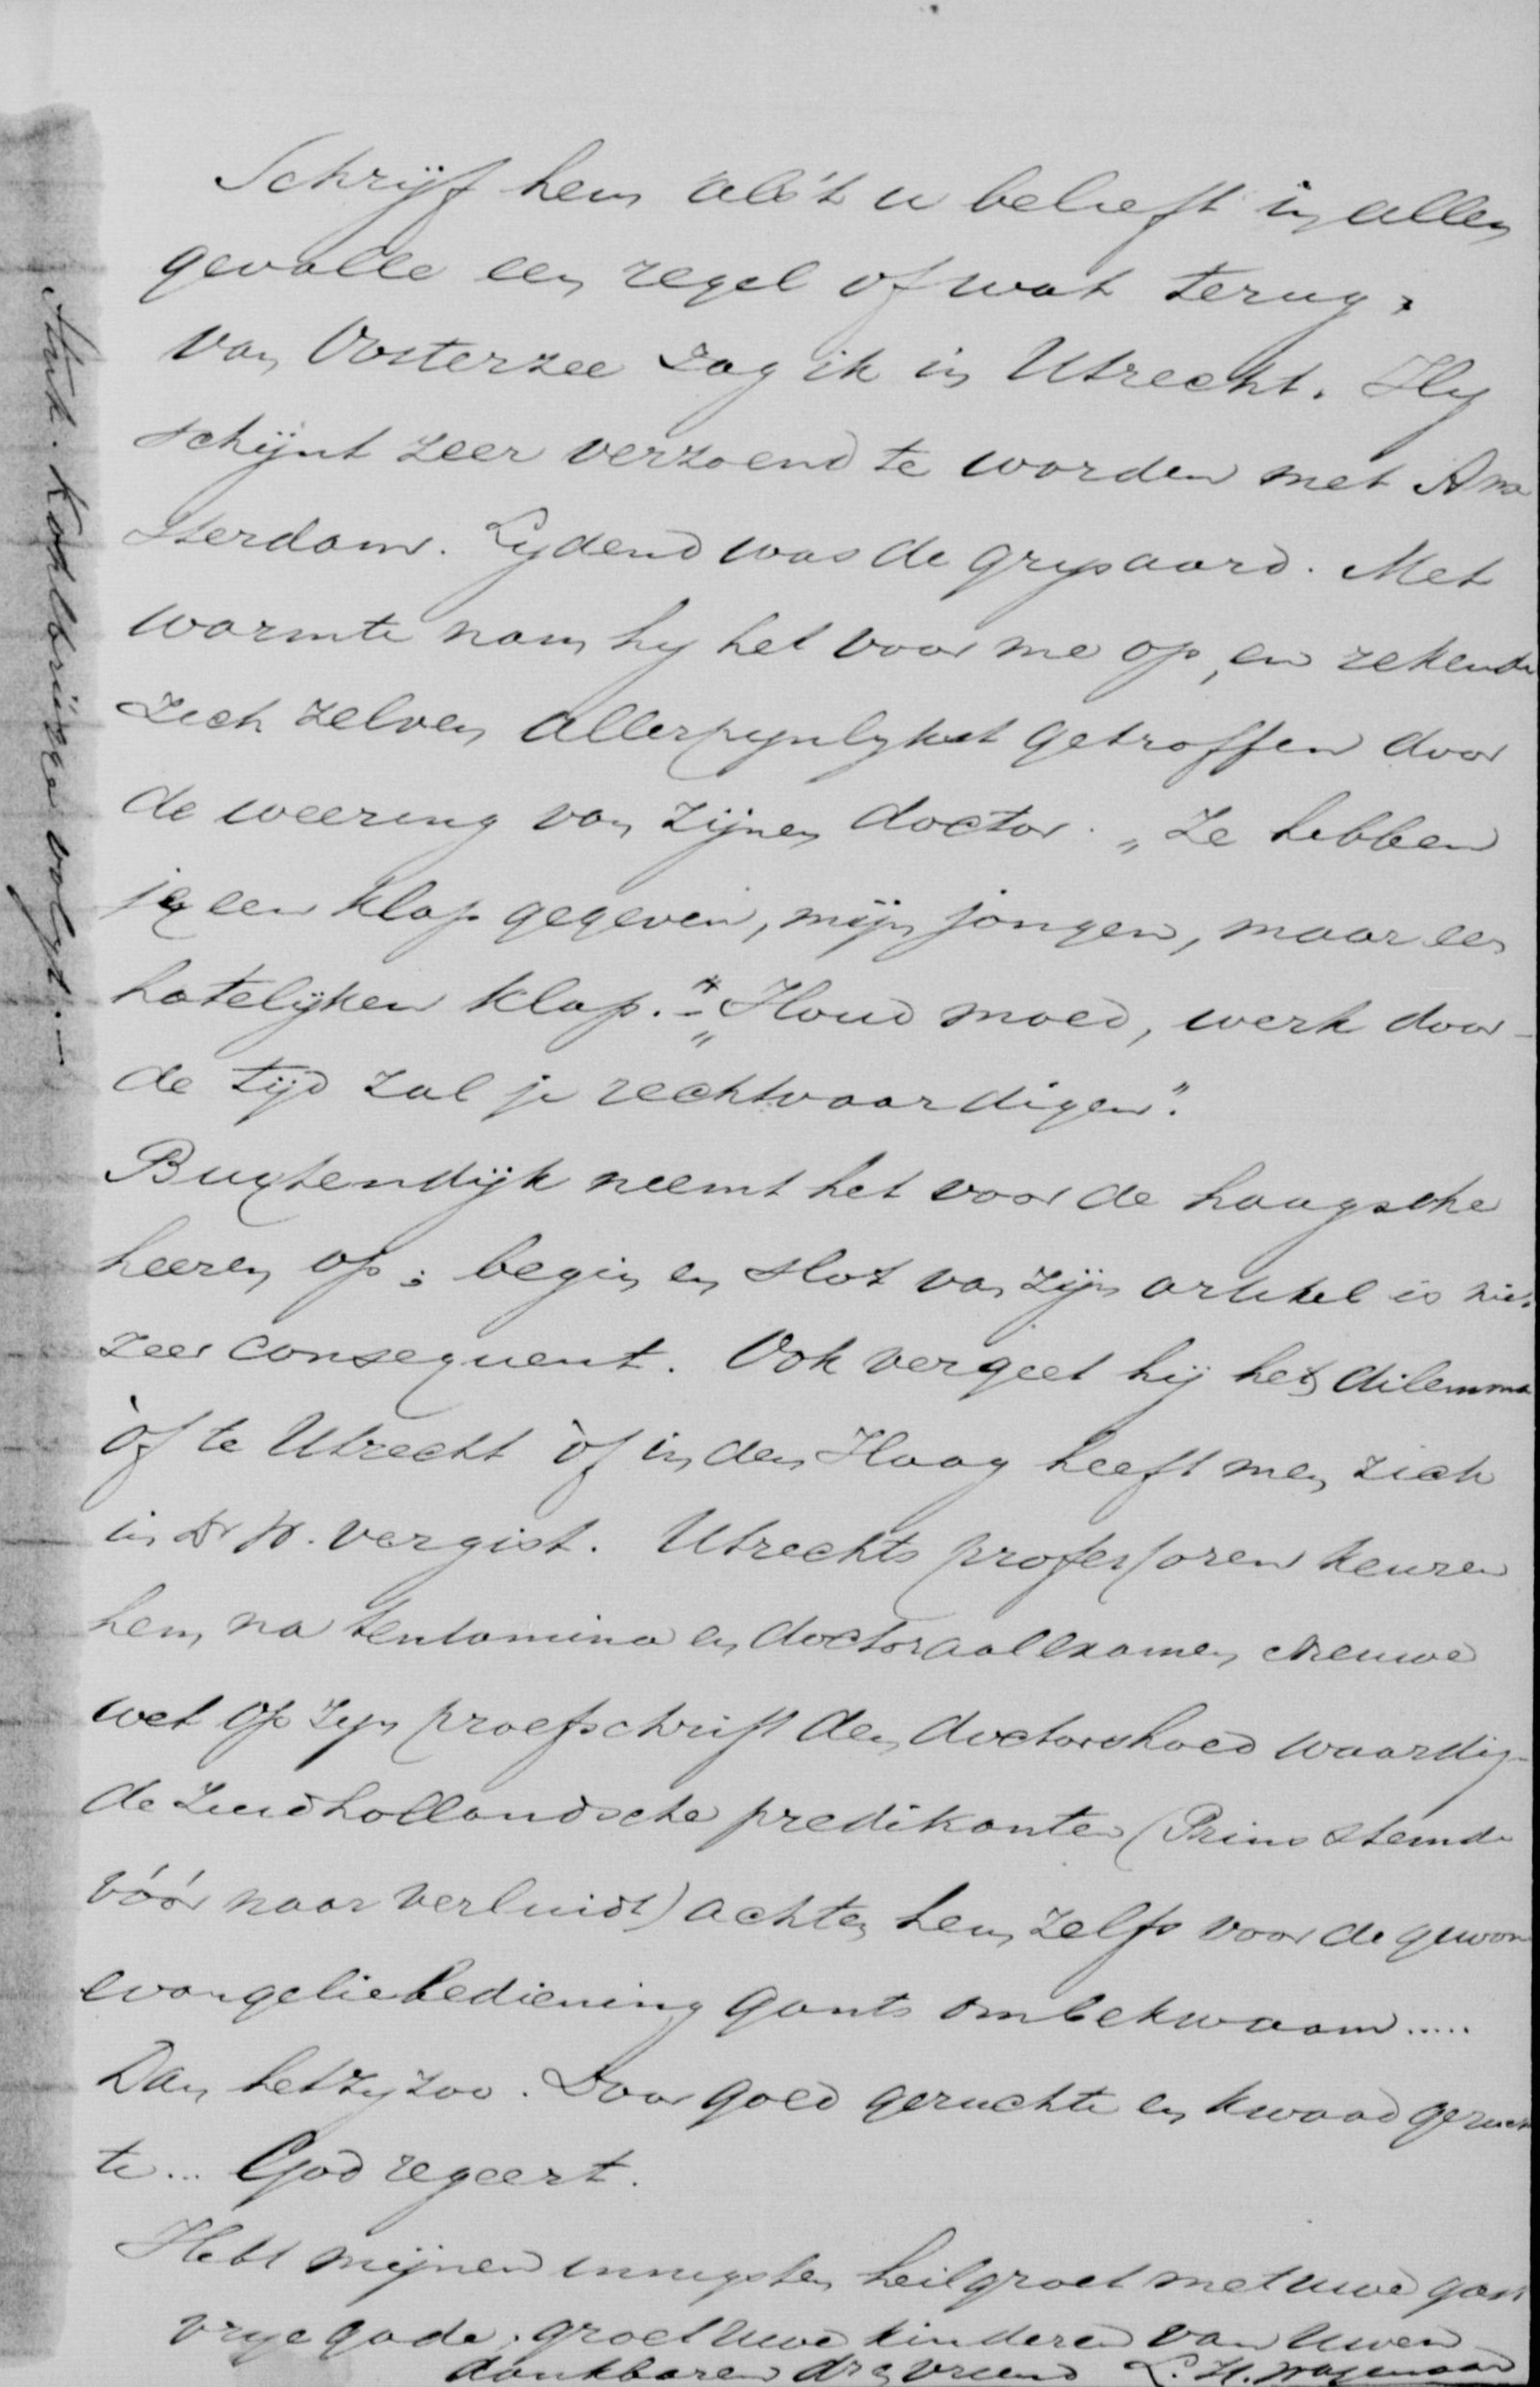 Schrijf hem als't u belieft in allen
gevalle een regel of wat terug.
van Oosterzee zag ik in Utrecht. Hy
schijnt zeer verzoend te worden met Am
sterdam. Lydend was de grysaard. Met
warmte nam hy het voor me op, en rekende
zich zelven allerpynlykst getroffen door
de weering van zijnen doctor. „Ze hebben
je een klap gegeven, mijn jongen, maar een
hatelijken klap." - „Houd moed, werk door -
de tijd zal je rechtvaardigen".
Buytendijk neemt het voor de haagsche
heeren op; begin en slot van zijn artikel is niet
zeer consequent. Ook vergeet hij het dilemma
òf te Utrecht òf in den Haag heeft men zich
in Dr W. vergist. Utrechts professoren keuren
hem, na tentamina en doctoraalexamen nieuwe
wet op zyn proefschrift den doctorshoed waardig -
de Zuidhollandsche predikanten (Prins stemde
vóór naar verluidt) achten hem zelfs voor de gewone
evangeliebediening gants onbekwaam.....
Dan het zy zoo. Door goed geruchte en kwaad geruch
te... God regeert.
Hebt mijnen innigsten heilgroet met uwe gast
vrye gade, groet uwe kinderen van uwen
dankbaren vriend L. H. Wagenaar
Kohlbrügge volgt. -